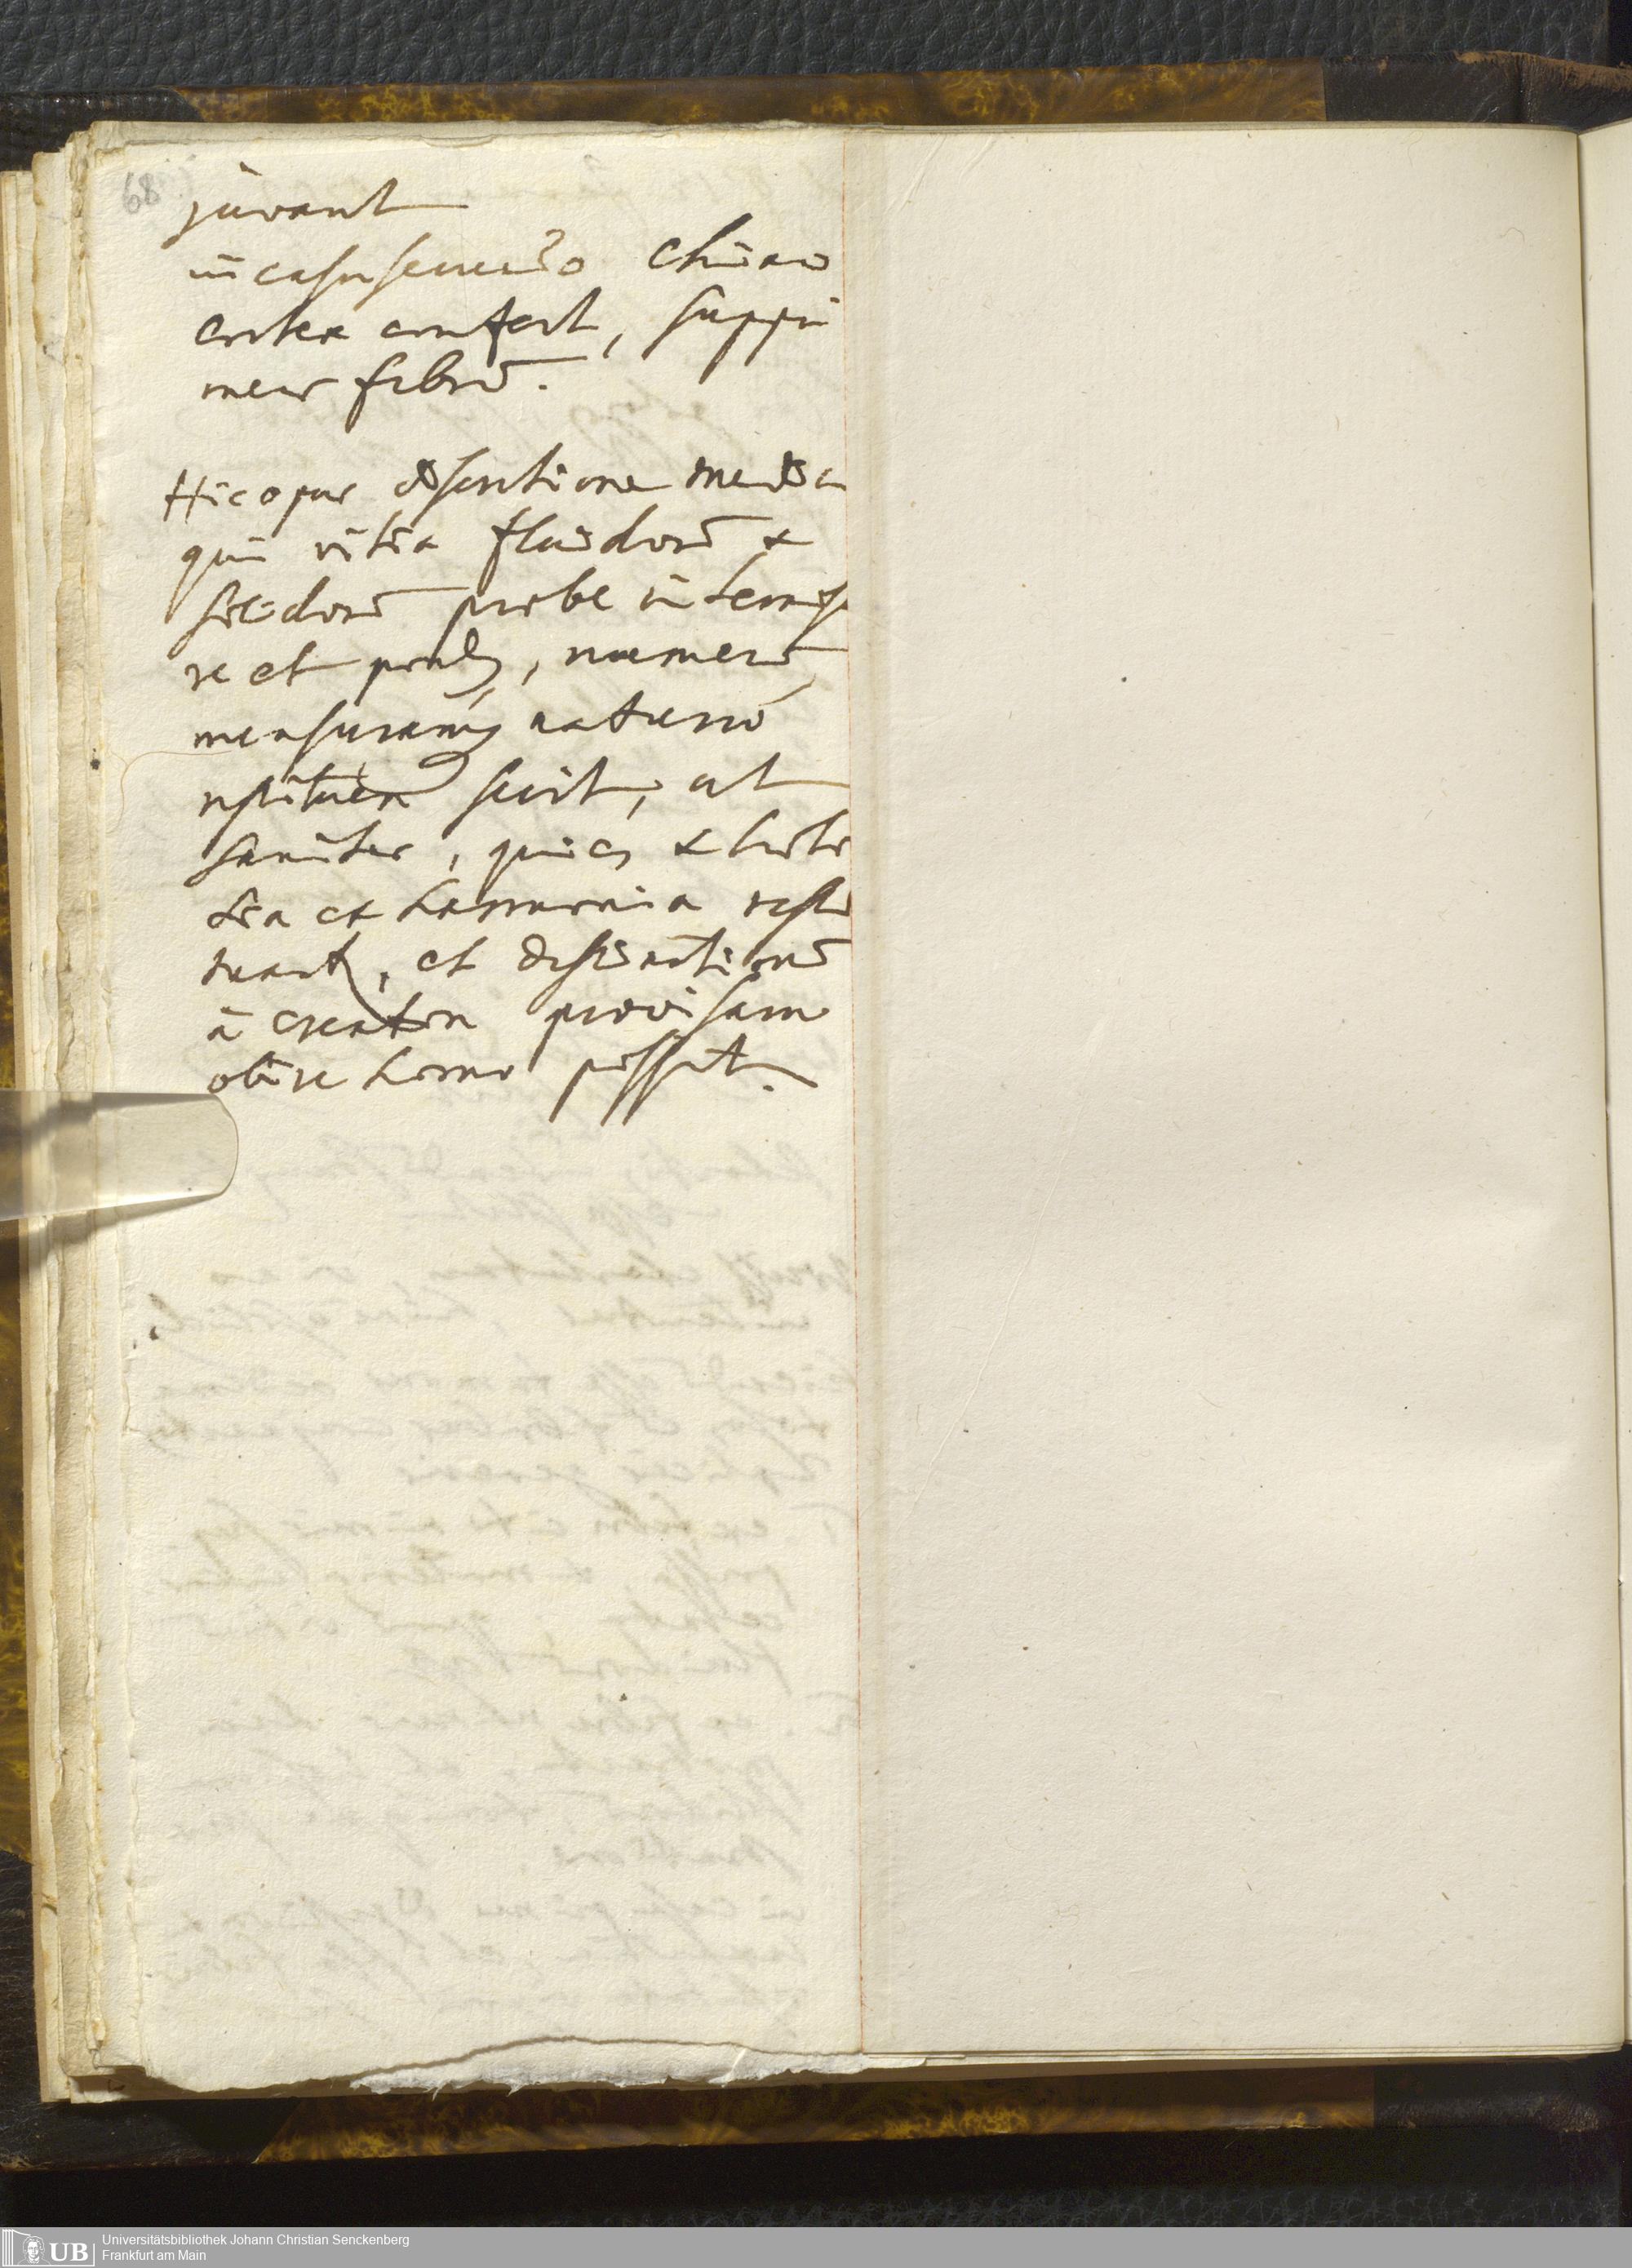 68
juvant
in casu secundo Chinae
cortex confert, suppri
mens febrē.
Hic opus est sortione medica
qui vitia fluidorū &
solidorū probe intellige
re et pondus, numerū
mensuramq naturae
restituere scit, ut
sanitas, quies &
et harmonia resti
tuant, et destinationē
a creatore provisam
obire homo possit.
UB
Universitätsbibliothek Johann Christian Senckenberg
Frankfurt am Main